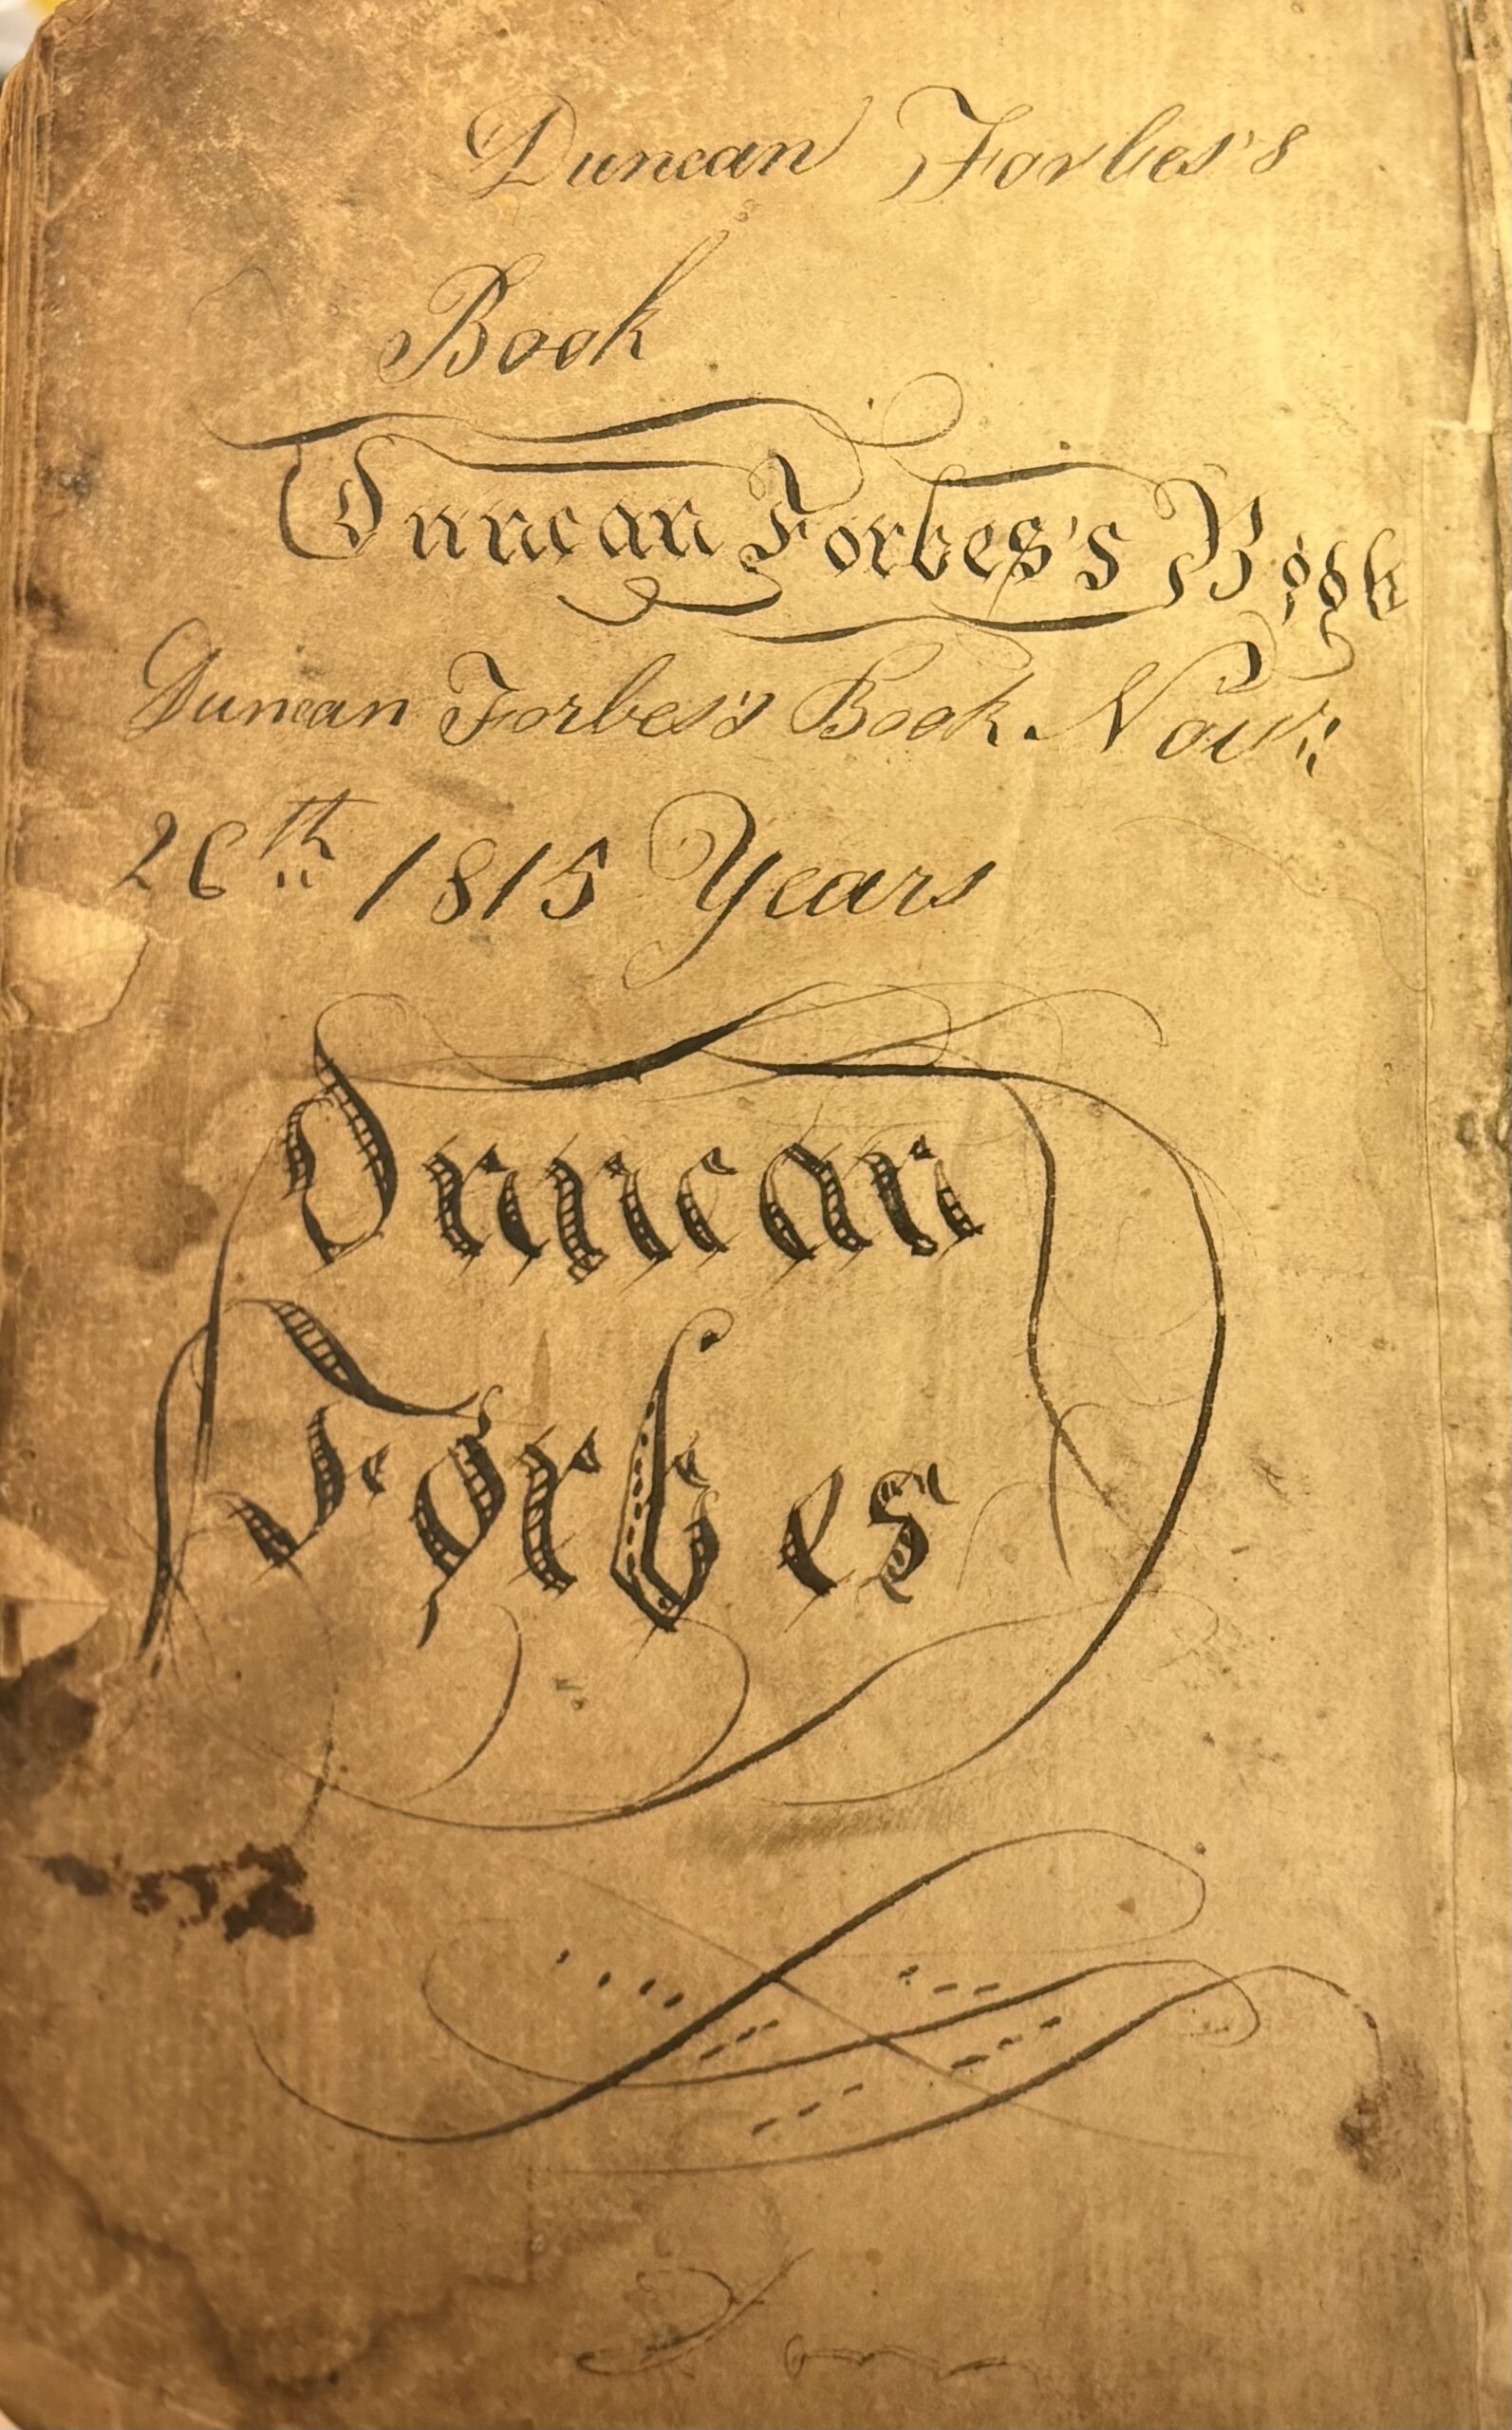 Duncan Forbes's
Book
Duncan Forbes's Book
Duncan Forbes's Book. Nov.r
26th 1815 Years
Duncan
Forbes